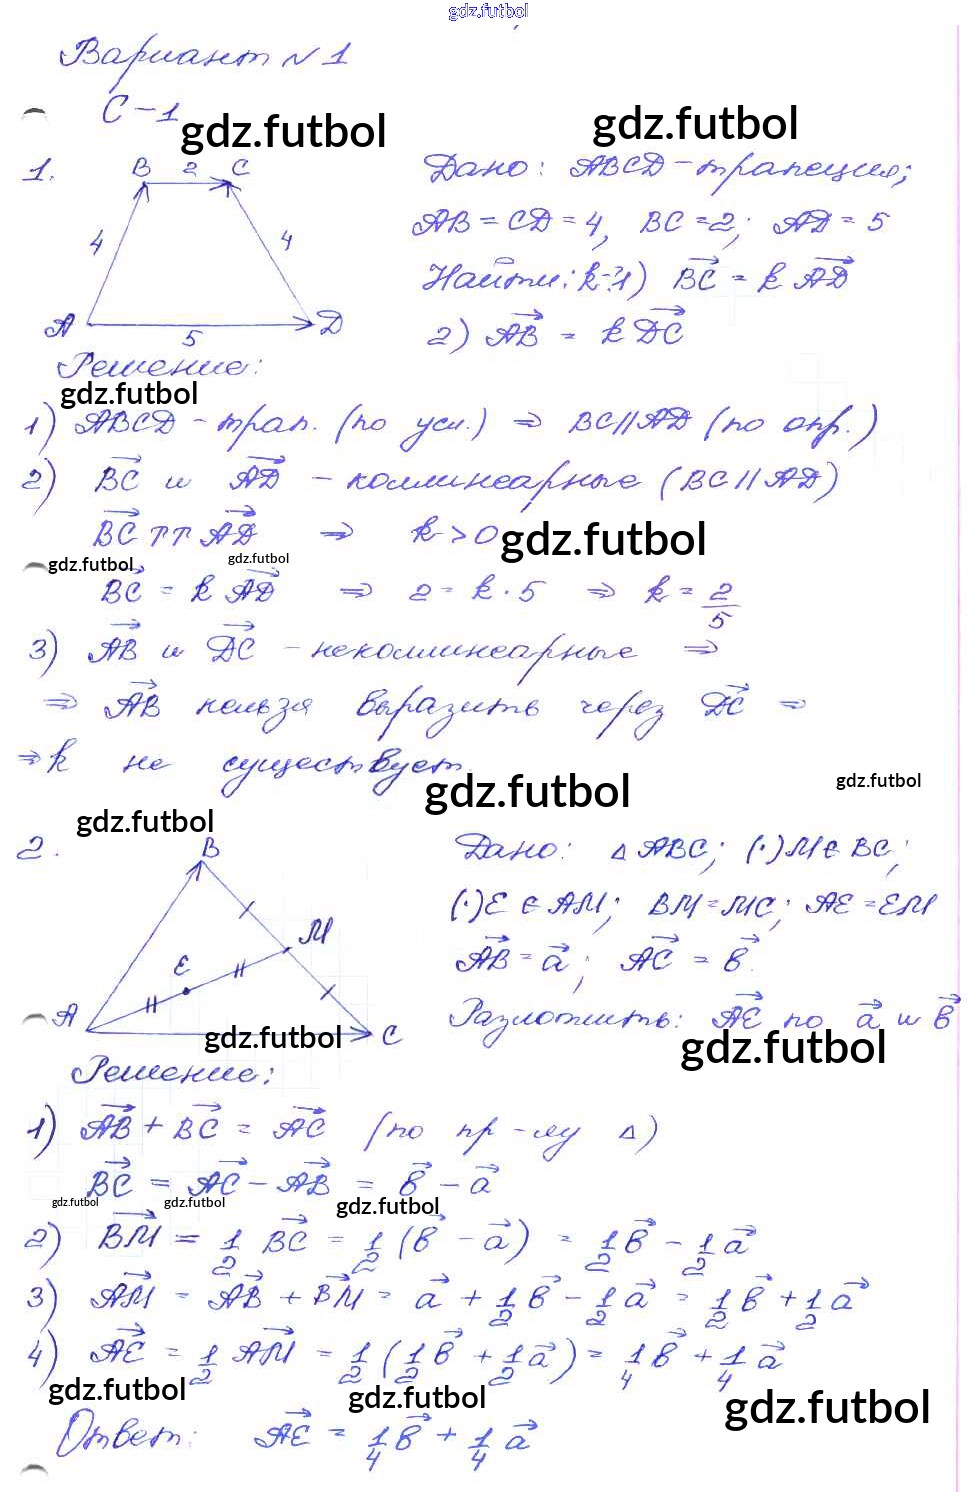 gdz.futbol
Вариант №1
С-1
gdz.futbol gdz.futbol
1. B 2 C
4 4
A 5 D
Дано: ABCD - трапеция;
AB = CD = 4, BC = 2; AD = 5
Найти: k-? 1) BC = k AD
2) AB = k DC
Решение:
gdz.futbol
1) ABCD - трап. (по усл.) ⇒ BC || AD (по опр.)
2) BC и AD - коллинеарные (BC || AD)
BC ↑↑ AD ⇒ k > 0
gdz.futbol
gdz.futbol gdz.futbol
BC = k AD ⇒ 2 = k · 5 ⇒ k = 2/5
3) AB и DC - неколлинеарные ⇒
⇒ AB нельзя выразить через DC ⇒
⇒ k не существует.
gdz.futbol gdz.futbol
gdz.futbol
2. B
M
E
A C
Дано: △ ABC; (·) M ∈ BC;
(·) E ∈ AM; BM = MC; AE = EM
AB = a; AC = в.
Разложить: AE по a и в
gdz.futbol gdz.futbol
Решение:
1) AB + BC = AC (по пр-лу △)
BC = AC - AB = в - a
gdz.futbol gdz.futbol gdz.futbol
2) BM = 1/2 BC = 1/2 (в - a) = 1/2 в - 1/2 a
3) AM = AB + BM = a + 1/2 в - 1/2 a = 1/2 в + 1/2 a
4) AE = 1/2 AM = 1/2 (1/2 в + 1/2 a) = 1/4 в + 1/4 a
gdz.futbol gdz.futbol gdz.futbol
Ответ: AE = 1/4 в + 1/4 a